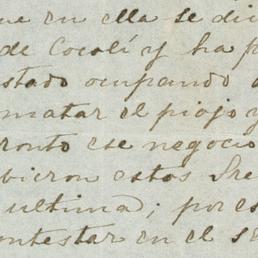 ue en ella se di
de Cocolí y ha p
stado ocupando
matar el piojo y
ronto ese negocio
bieron estos Sre
ultima; por es
ontestar en el se